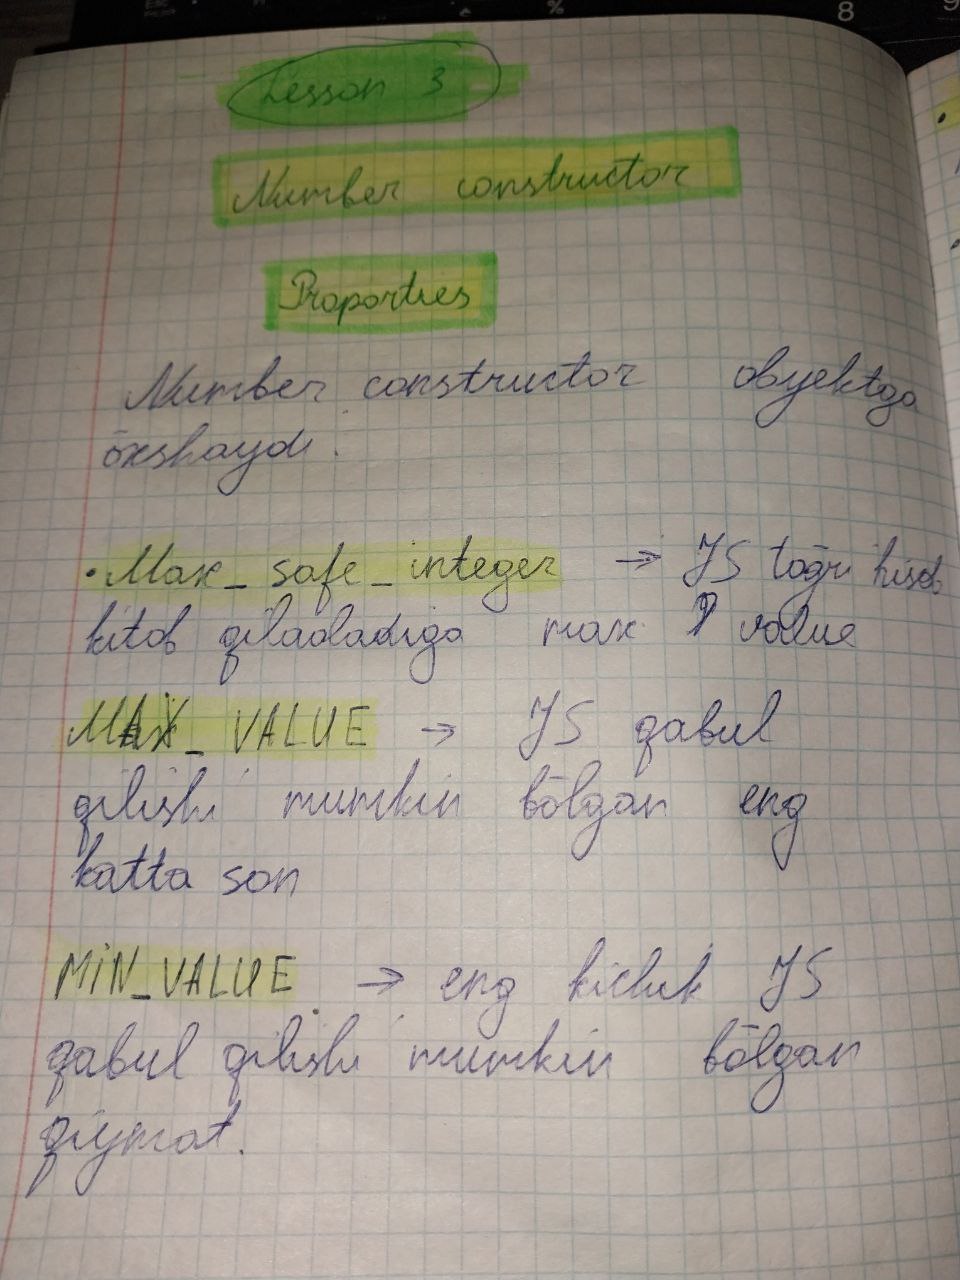 Lesson 3
Number constructor
Proporties
Number constructor obyektga
ōxshaydi.
• Max_safe_integer → JS tōg'ri hisob
kitob qilaoladiga max value
MAX_VALUE → JS qabul
qilishi mumkin bōlgan eng
katta son
MIN_VALUE → eng kichik JS
qabul qilishi mumkin bōlgan
qiymat.